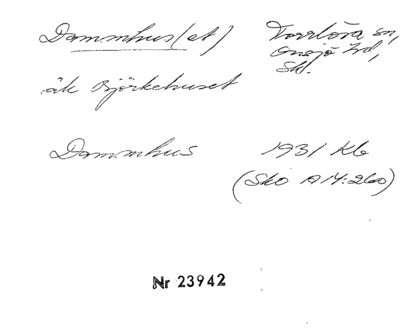 Dammhus(et) Torrlösa sn,
Onsjö hd,
Sk.
äk Björkehuset
Dammhus 1931 Kb
(SkO A14:260)
Nr 23942